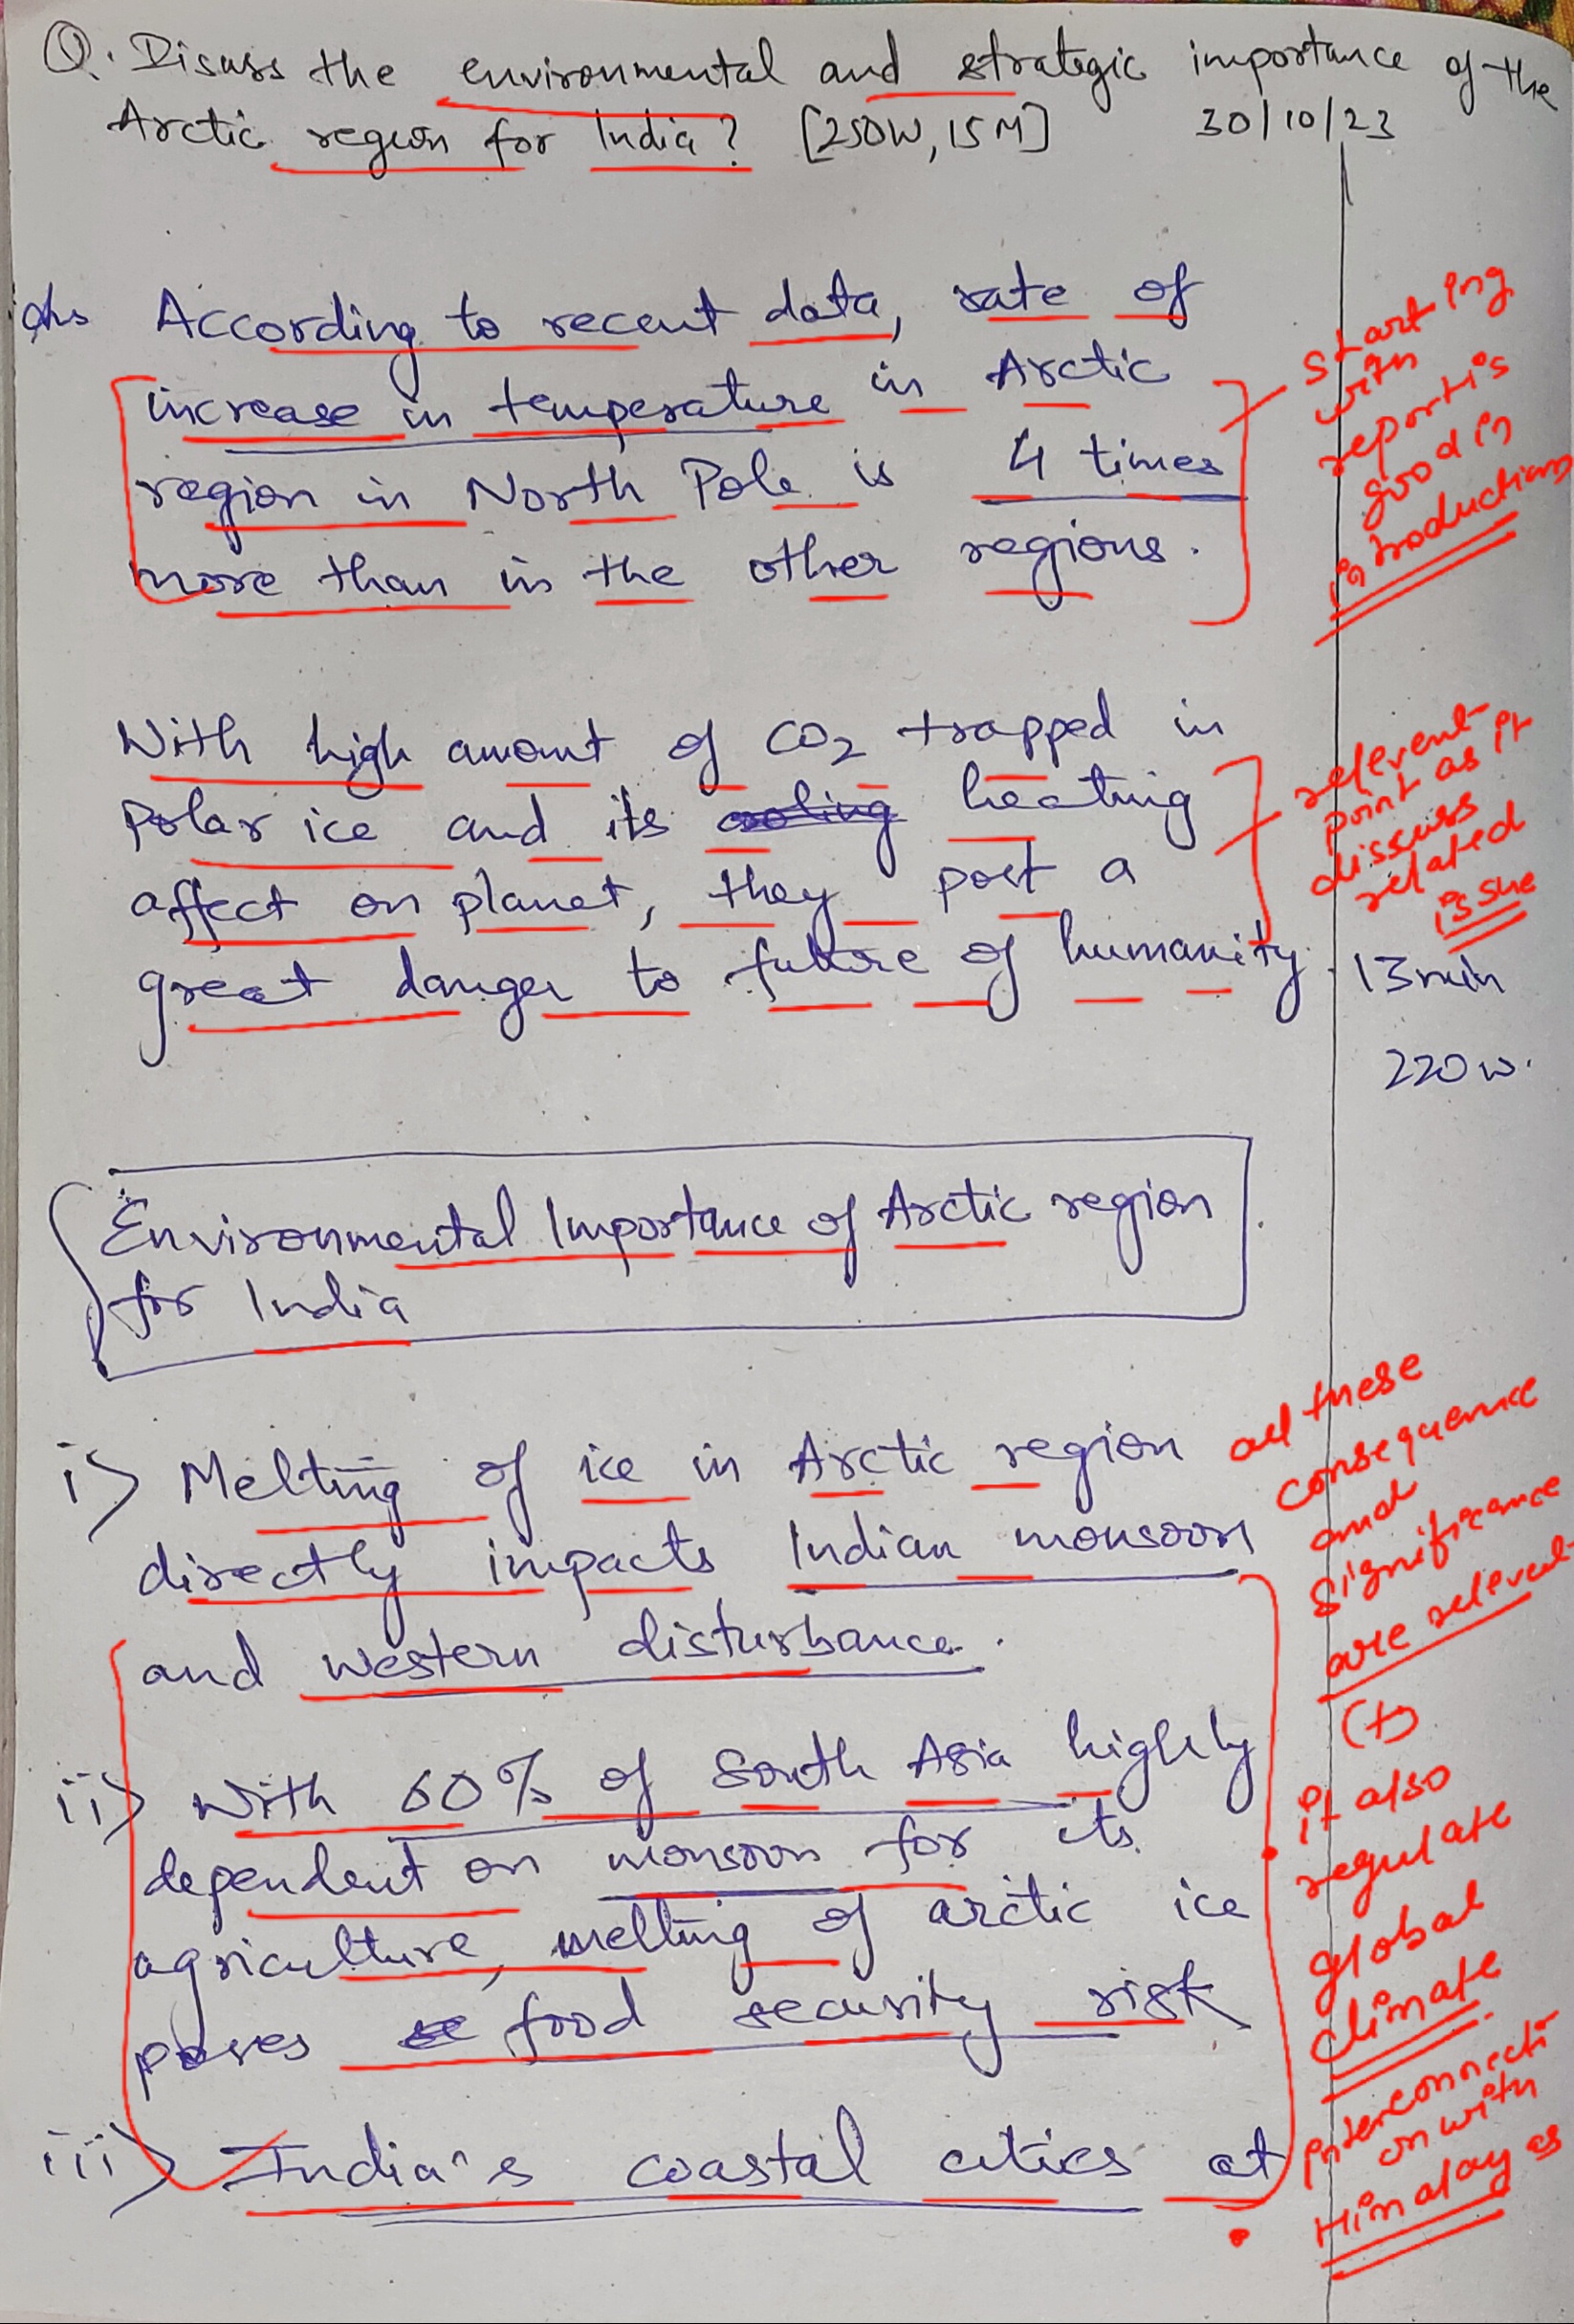 Q. Disuss the environmental and strategic importance of the
Arctic region for India? [250W, 15M] 30/10/23
Ans According to recent data, rate of
increase in temperature in Arctic
region in North Pole is 4 times
more than in the other regions.
starting
with
report is
good in
introduction
With high amount of CO2 trapped in
Polar ice and its heating
affect on planet, they post a
great danger to future of humanity.
relevent
point as it
dissuss
related
issue
13 min
220 w.
Environmental Importance of Arctic region
for India
i) Melting of ice in Arctic region
directly impacts Indian monsoon
and western disturbance.
ii) With 60% of South Asia highly
dependent on monsoon for its
agriculture, melting of arctic ice
poses food security risk
iii) India's coastal cities at
all these
consequence
and
significance
are relevent
(+)
• it also
regulate
global
climate
• interconnecti
on with
Himalayas